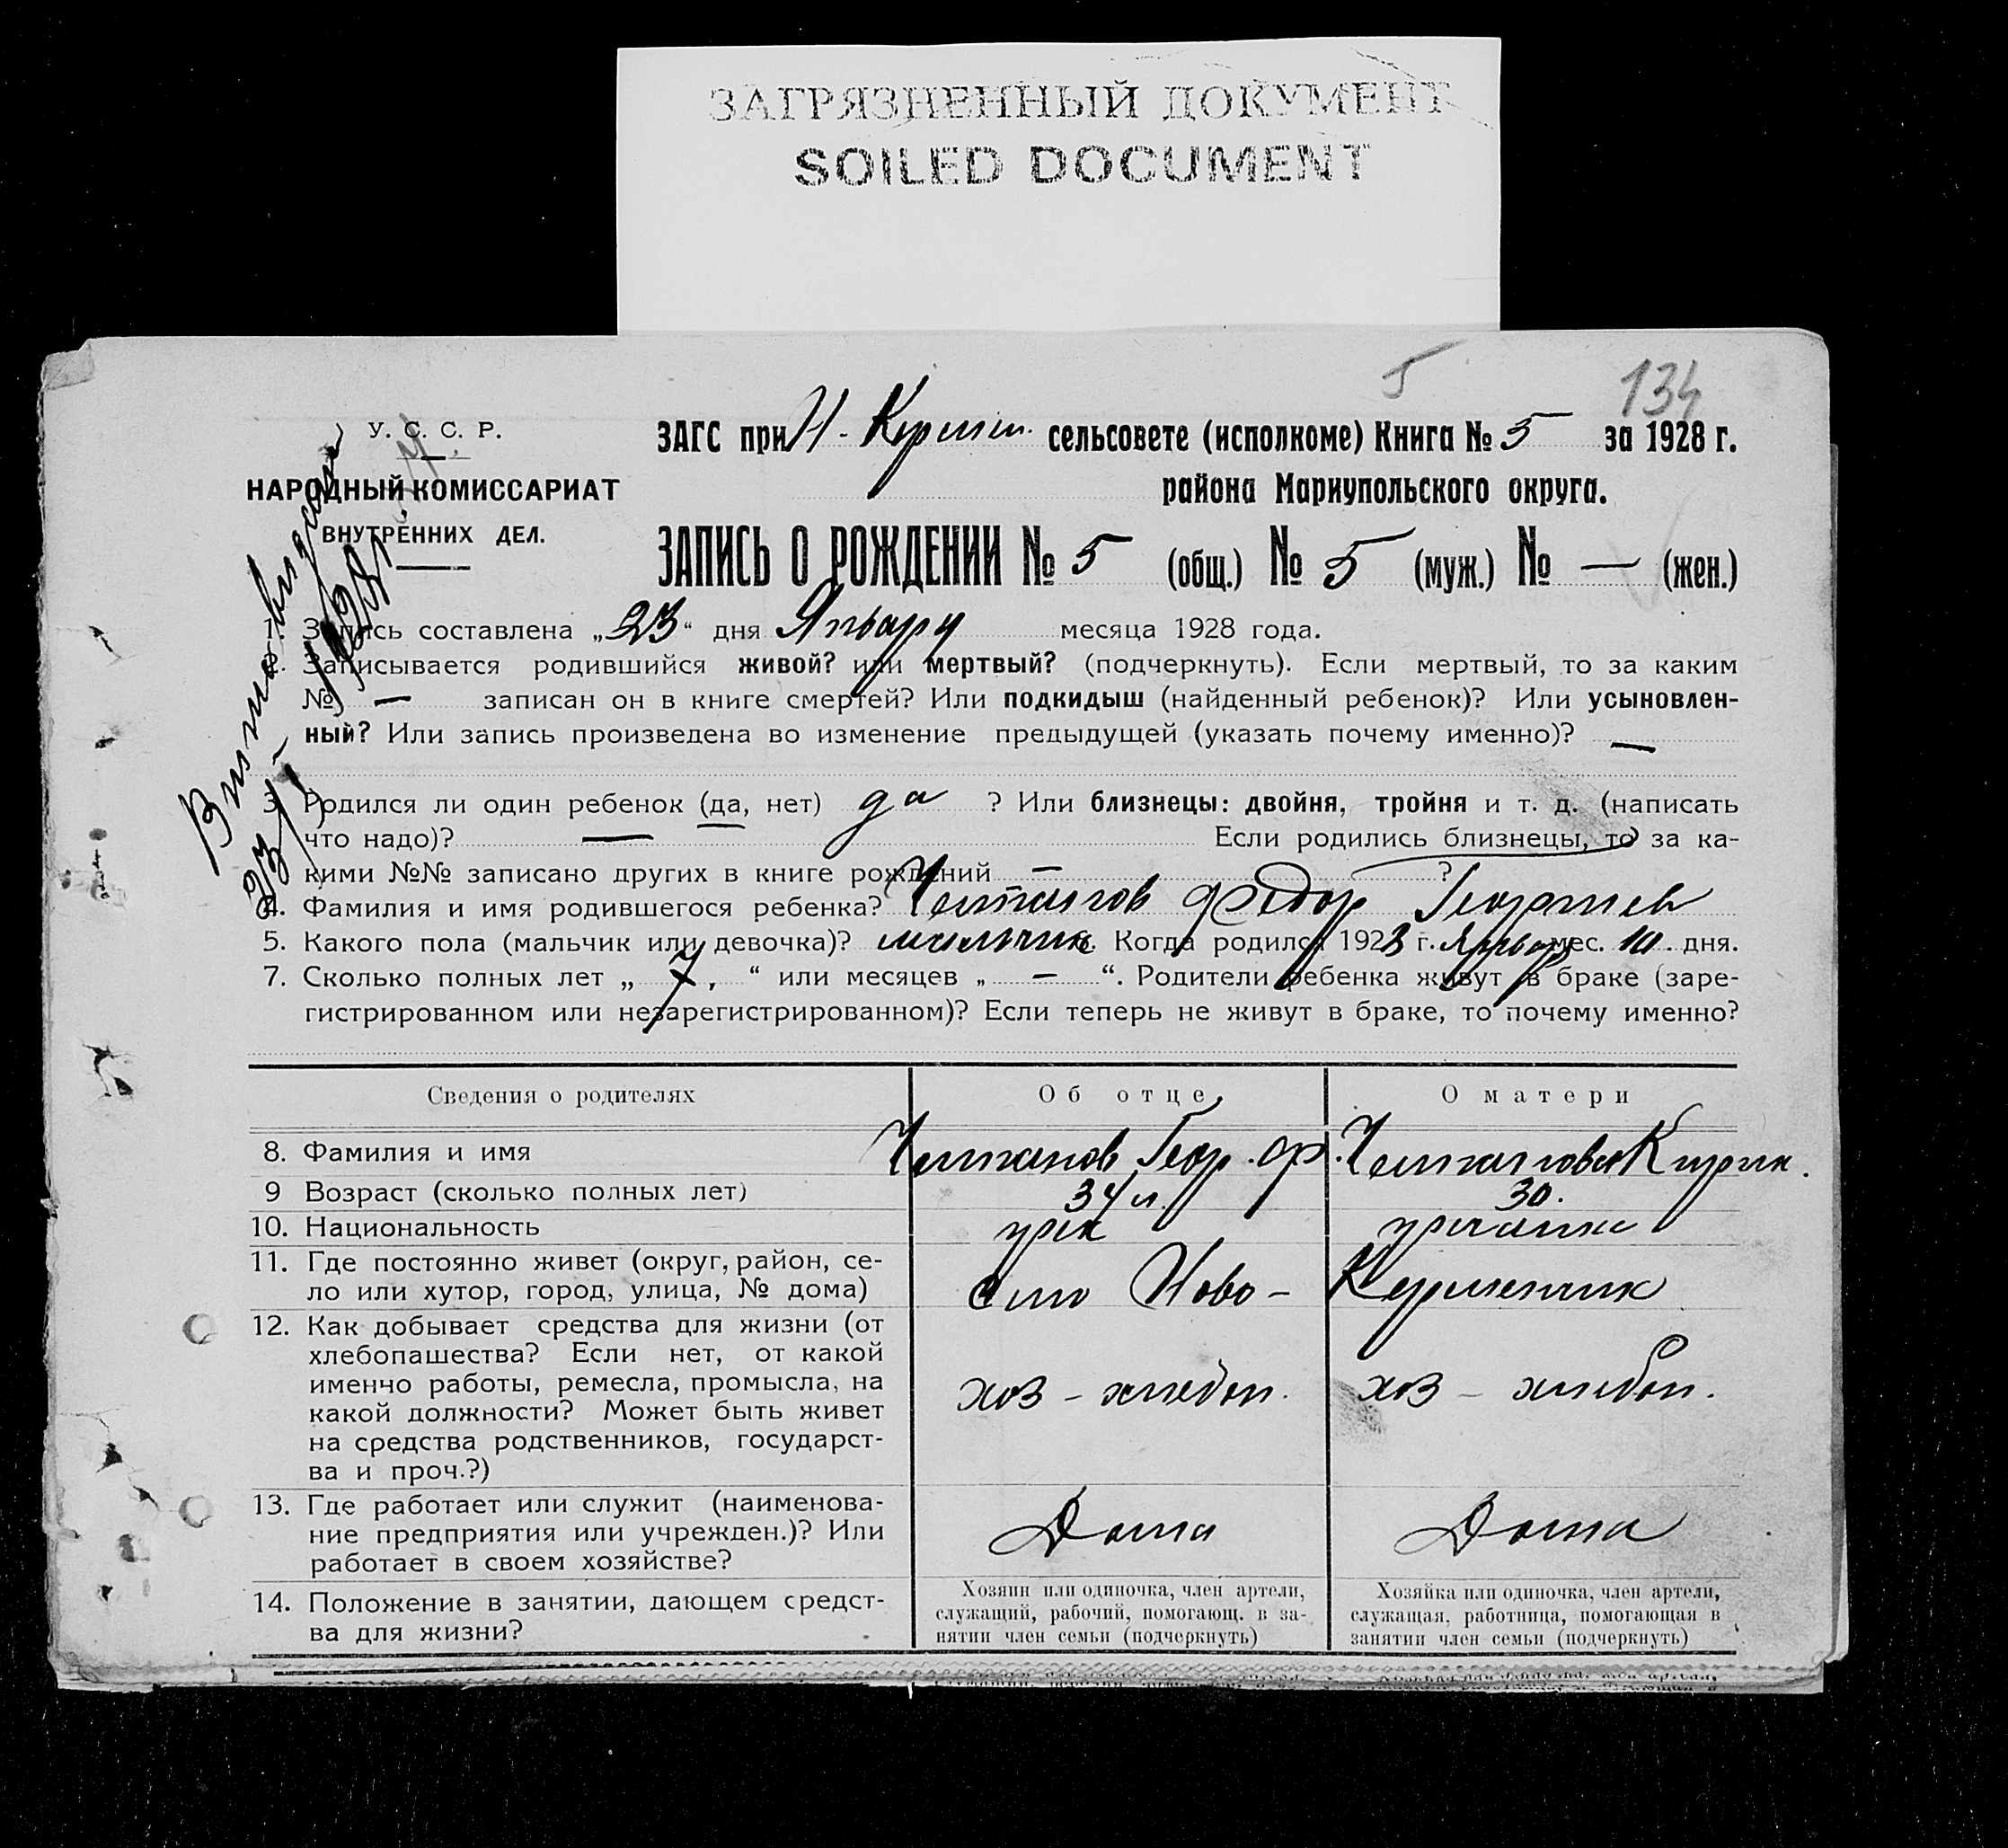 ЗАГРЯЗНЕННЫЙ ДОКУМЕНТ
SOILED DOCUMENT
5 134
У. С. С. Р.
НАРОДНЫЙ КОМИССАРИАТ
ВНУТРЕННИХ ДЕЛ.
ЗАГС при Н-Кермен. сельсовете (исполкоме) Книга № 5 за 1928 г.
района Мариупольского округа.
ЗАПИСЬ О РОЖДЕНИИ № 5 (общ.) № 5 (муж.) № — (жен.)
1. Запись составлена „23“ дня Январу месяца 1928 года.
2. Записывается родившийся живой? или мертвый? (подчеркнуть). Если мертвый, то за каким
№ — записан он в книге смертей? Или подкидыш (найденный ребенок)? Или усыновлен-
ный? Или запись произведена во изменение предыдущей (указать почему именно)? —
3. Родился ли один ребенок (да, нет) да ? Или близнецы: двойня, тройня и т. д. (написать
что надо)? — Если родились близнецы, то за ка-
кими №№ записано других в книге рождений — ?
4. Фамилия и имя родившегося ребенка? Челпанов Федор Георгиев
5. Какого пола (мальчик или девочка)? мальчик 6. Когда родился 1928 г. Январ мес. 10 дня.
7. Сколько полных лет „ 7, “ или месяцев „ — “. Родители ребенка живут в браке (заре-
гистрированном или незарегистрированном)? Если теперь не живут в браке, то почему именно?
Сведения о родителях Об отце О матери
8. Фамилия и имя Челпанов Геор. Ф. Челпанова
9 Возраст (сколько полных лет) 34 л. 30.
10. Национальность грек гречанка
11. Где постоянно живет (округ, район, се-
ло или хутор, город, улица, № дома) село Ново- Керменчик
12. Как добывает средства для жизни (от
хлебопашества? Если нет, от какой
именно работы, ремесла, промысла, на
какой должности? Может быть живет
на средства родственников, государст-
ва и проч.?)
хоз - хлебоп. хоз - хлебоп.
13. Где работает или служит (наименова-
ние предприятия или учрежден.)? Или
работает в своем хозяйстве?
Дома Дома
14. Положение в занятии, дающем средст-
ва для жизни?
Хозяин или одиночка, член артели,
служащий, рабочий, помогающ. в за-
нятии член семьи (подчеркнуть)
Хозяйка или одиночка, член артели,
служащая, работница, помогающая в
занятии член семьи (подчеркнуть)